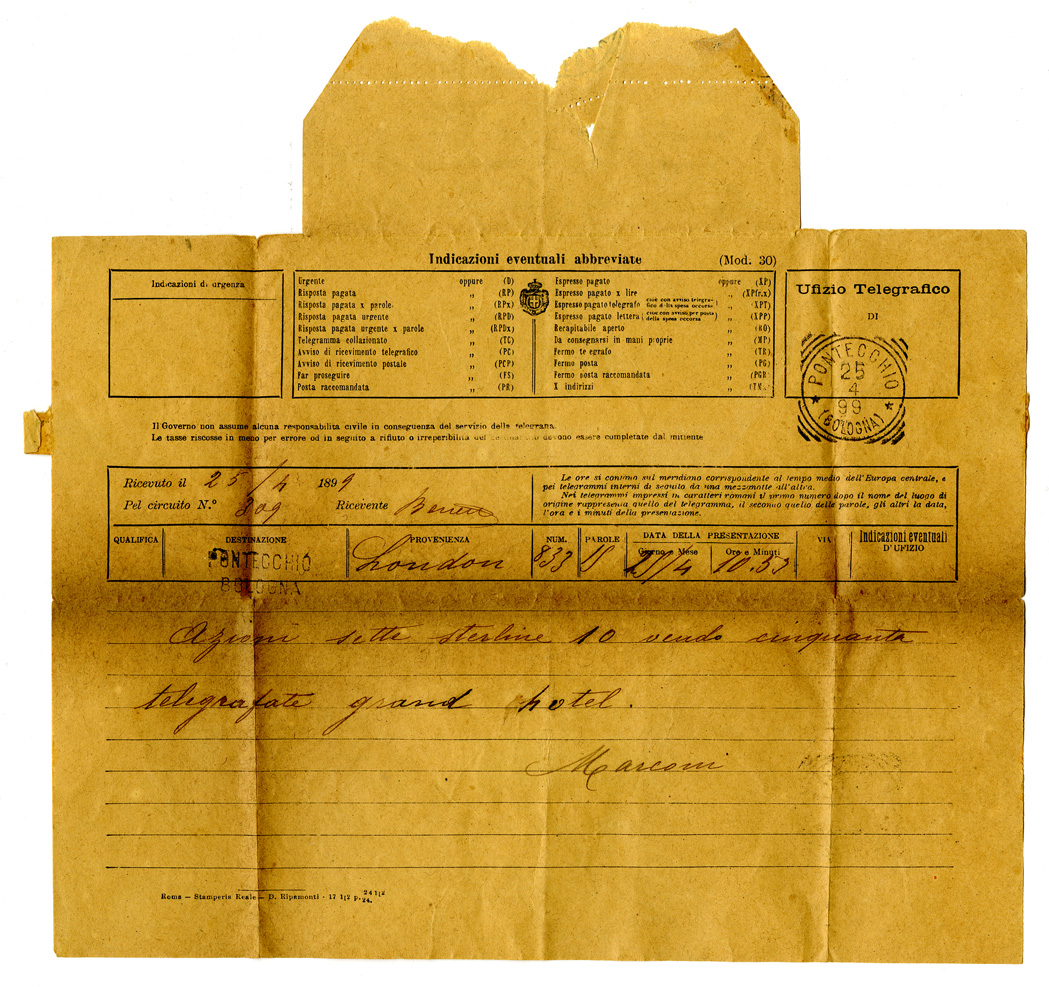 Indicazioni eventuali abbreviate (Mod. 30)
Indicazioni di urgenza
Urgente oppure (D)
Risposta pagata „ (RP)
Risposta pagata x parole „ (RPx)
Risposta pagata urgente „ (RPD)
Risposta pagata urgente x parole „ (RPDx)
Telegramma collazionato „ (TC)
Avviso di ricevimento telegrafico „ (PC)
Avviso di ricevimento postale „ (PCP)
Far proseguire „ (FS)
Posta raccomandata „ (PR)
Espresso pagato oppure (XP)
Espresso pagato x lire „ (XPfr.x)
Espresso pagato telegrafo (cioè con avviso telegrafico della spesa occorsa) „ (XPT)
Espresso pagato lettera (cioè con avviso per posta della spesa occorsa) „ (XPP)
Recapitabile aperto „ (RO)
Da consegnarsi in mani proprie „ (MP)
Fermo te egrafo „ (TR)
Fermo posta „ (PG)
Fermo posta raccomandata „ (PGR
X indirizzi „ (TM
Ufizio Telegrafico
DI
PONTECCHIO
25
4
99
(BOLOGNA)
Il Governo non assume alcuna responsabilità civile in conseguenza del servizio della telegrafia.
Le tasse riscosse in meno per errore od in seguito a rifiuto o irreperibilità del devono essere completate dal mittente
Ricevuto il 25/4 1899
Pel circuito N.º 309 Ricevente
Le ore si contano sul meridiano corrispondente al tempo medio dell'Europa centrale, e
pei telegrammi interni di seguito da una mezzanotte all'altra.
Nei telegrammi impressi in caratteri romani il primo numero dopo il nome del luogo di
origine rappresenta quello del telegramma, il secondo quello delle parole, gli altri la data,
l'ora e i minuti della presentazione.
QUALIFICA DESTINAZIONE PROVENIENZA NUM. PAROLE DATA DELLA PRESENTAZIONE VIA Indicazioni eventuali
D'UFIZIO
Giorno e Mese Ore e Minuti
PONTECCHIO
BOLOGNA
London 833 10.53
Azioni sette sterline 10 vendo cinquanta
telegrafate grand hotel.
Marconi
Roma — Stamperia Reale — D. Ripamonti - 17 1|2 p. 24 1|2
24.